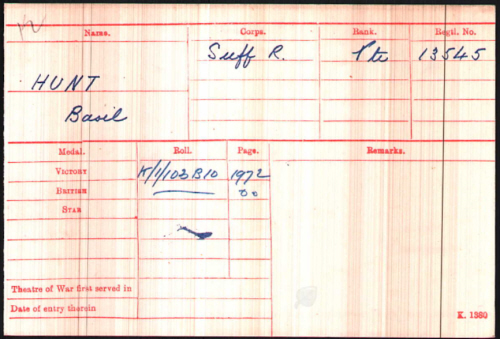 Name. Corps. Rank. Regtl. No.
Suff R. Pte 13545
HUNT
Basil
Medal. Roll. Page. Remarks.
VICTORY K/1/103B10 1972
BRITISH do
STAR
Theatre of War first served in
Date of entry therein
K. 1380